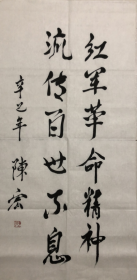 红军革命精神
流传百世不息
辛巳年 陳宏